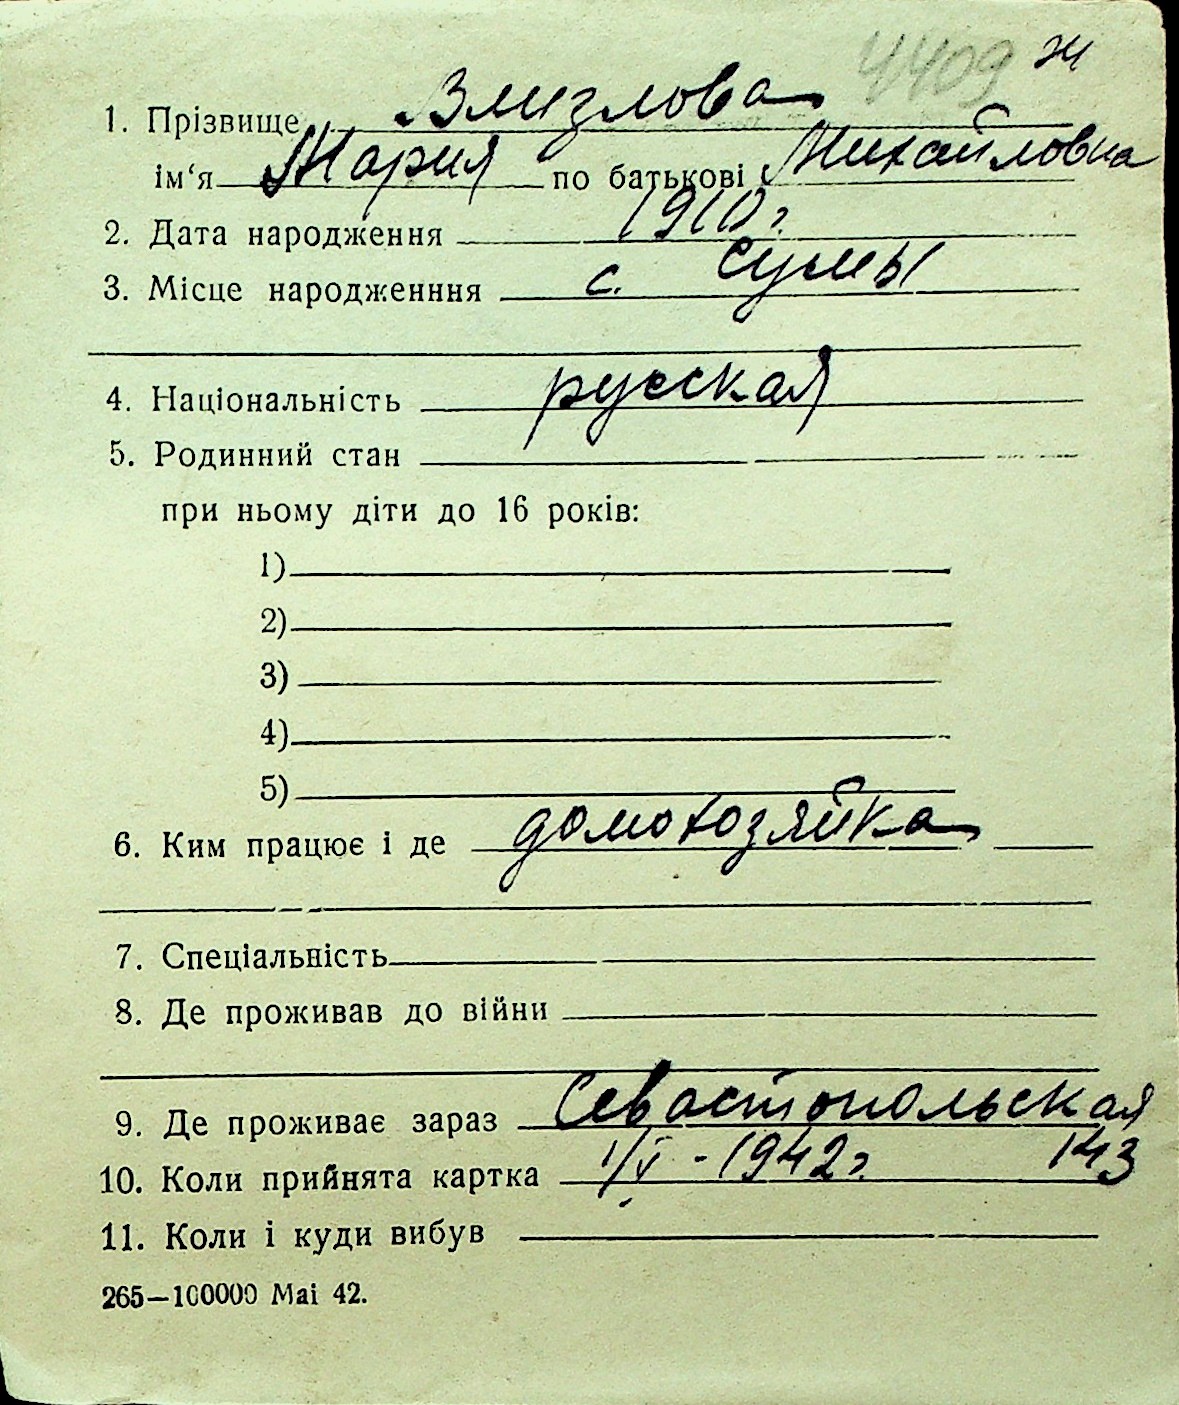 4409 Ж
1. Прізвище Злизлова
ім‘я Мария по батькові Михайловна
2. Дата народження 1910 г.
3. Місце народженння с. Сумы
4. Національність русская
5. Родинний стан
при ньому діти до 16 років:
1)
2)
3)
4)
5)
6. Ким працює і де домохозяйка
7. Спеціальність
8. Де проживав до війни
9. Де проживає зараз Севастопольская
143
10. Коли прийнята картка 1/V - 1942 г.
11. Коли і куди вибув
265—100000 Маі 42.